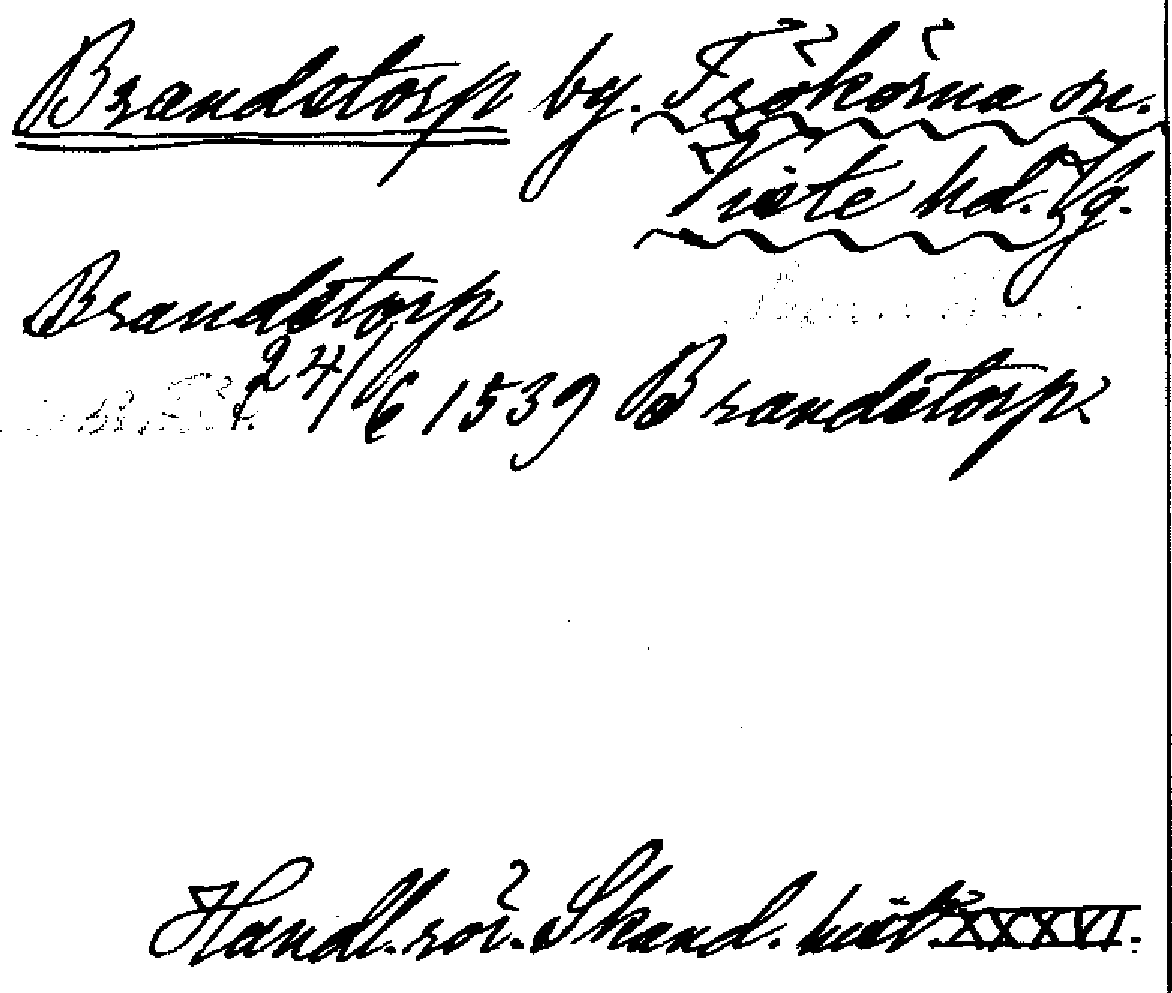 Brandstorp by. Frökinds sn.
Viste hd. Vg.
Brandstorp
24/6 1539 Brandstorp.
Handl. rör. Skand. hist. XXXVI: